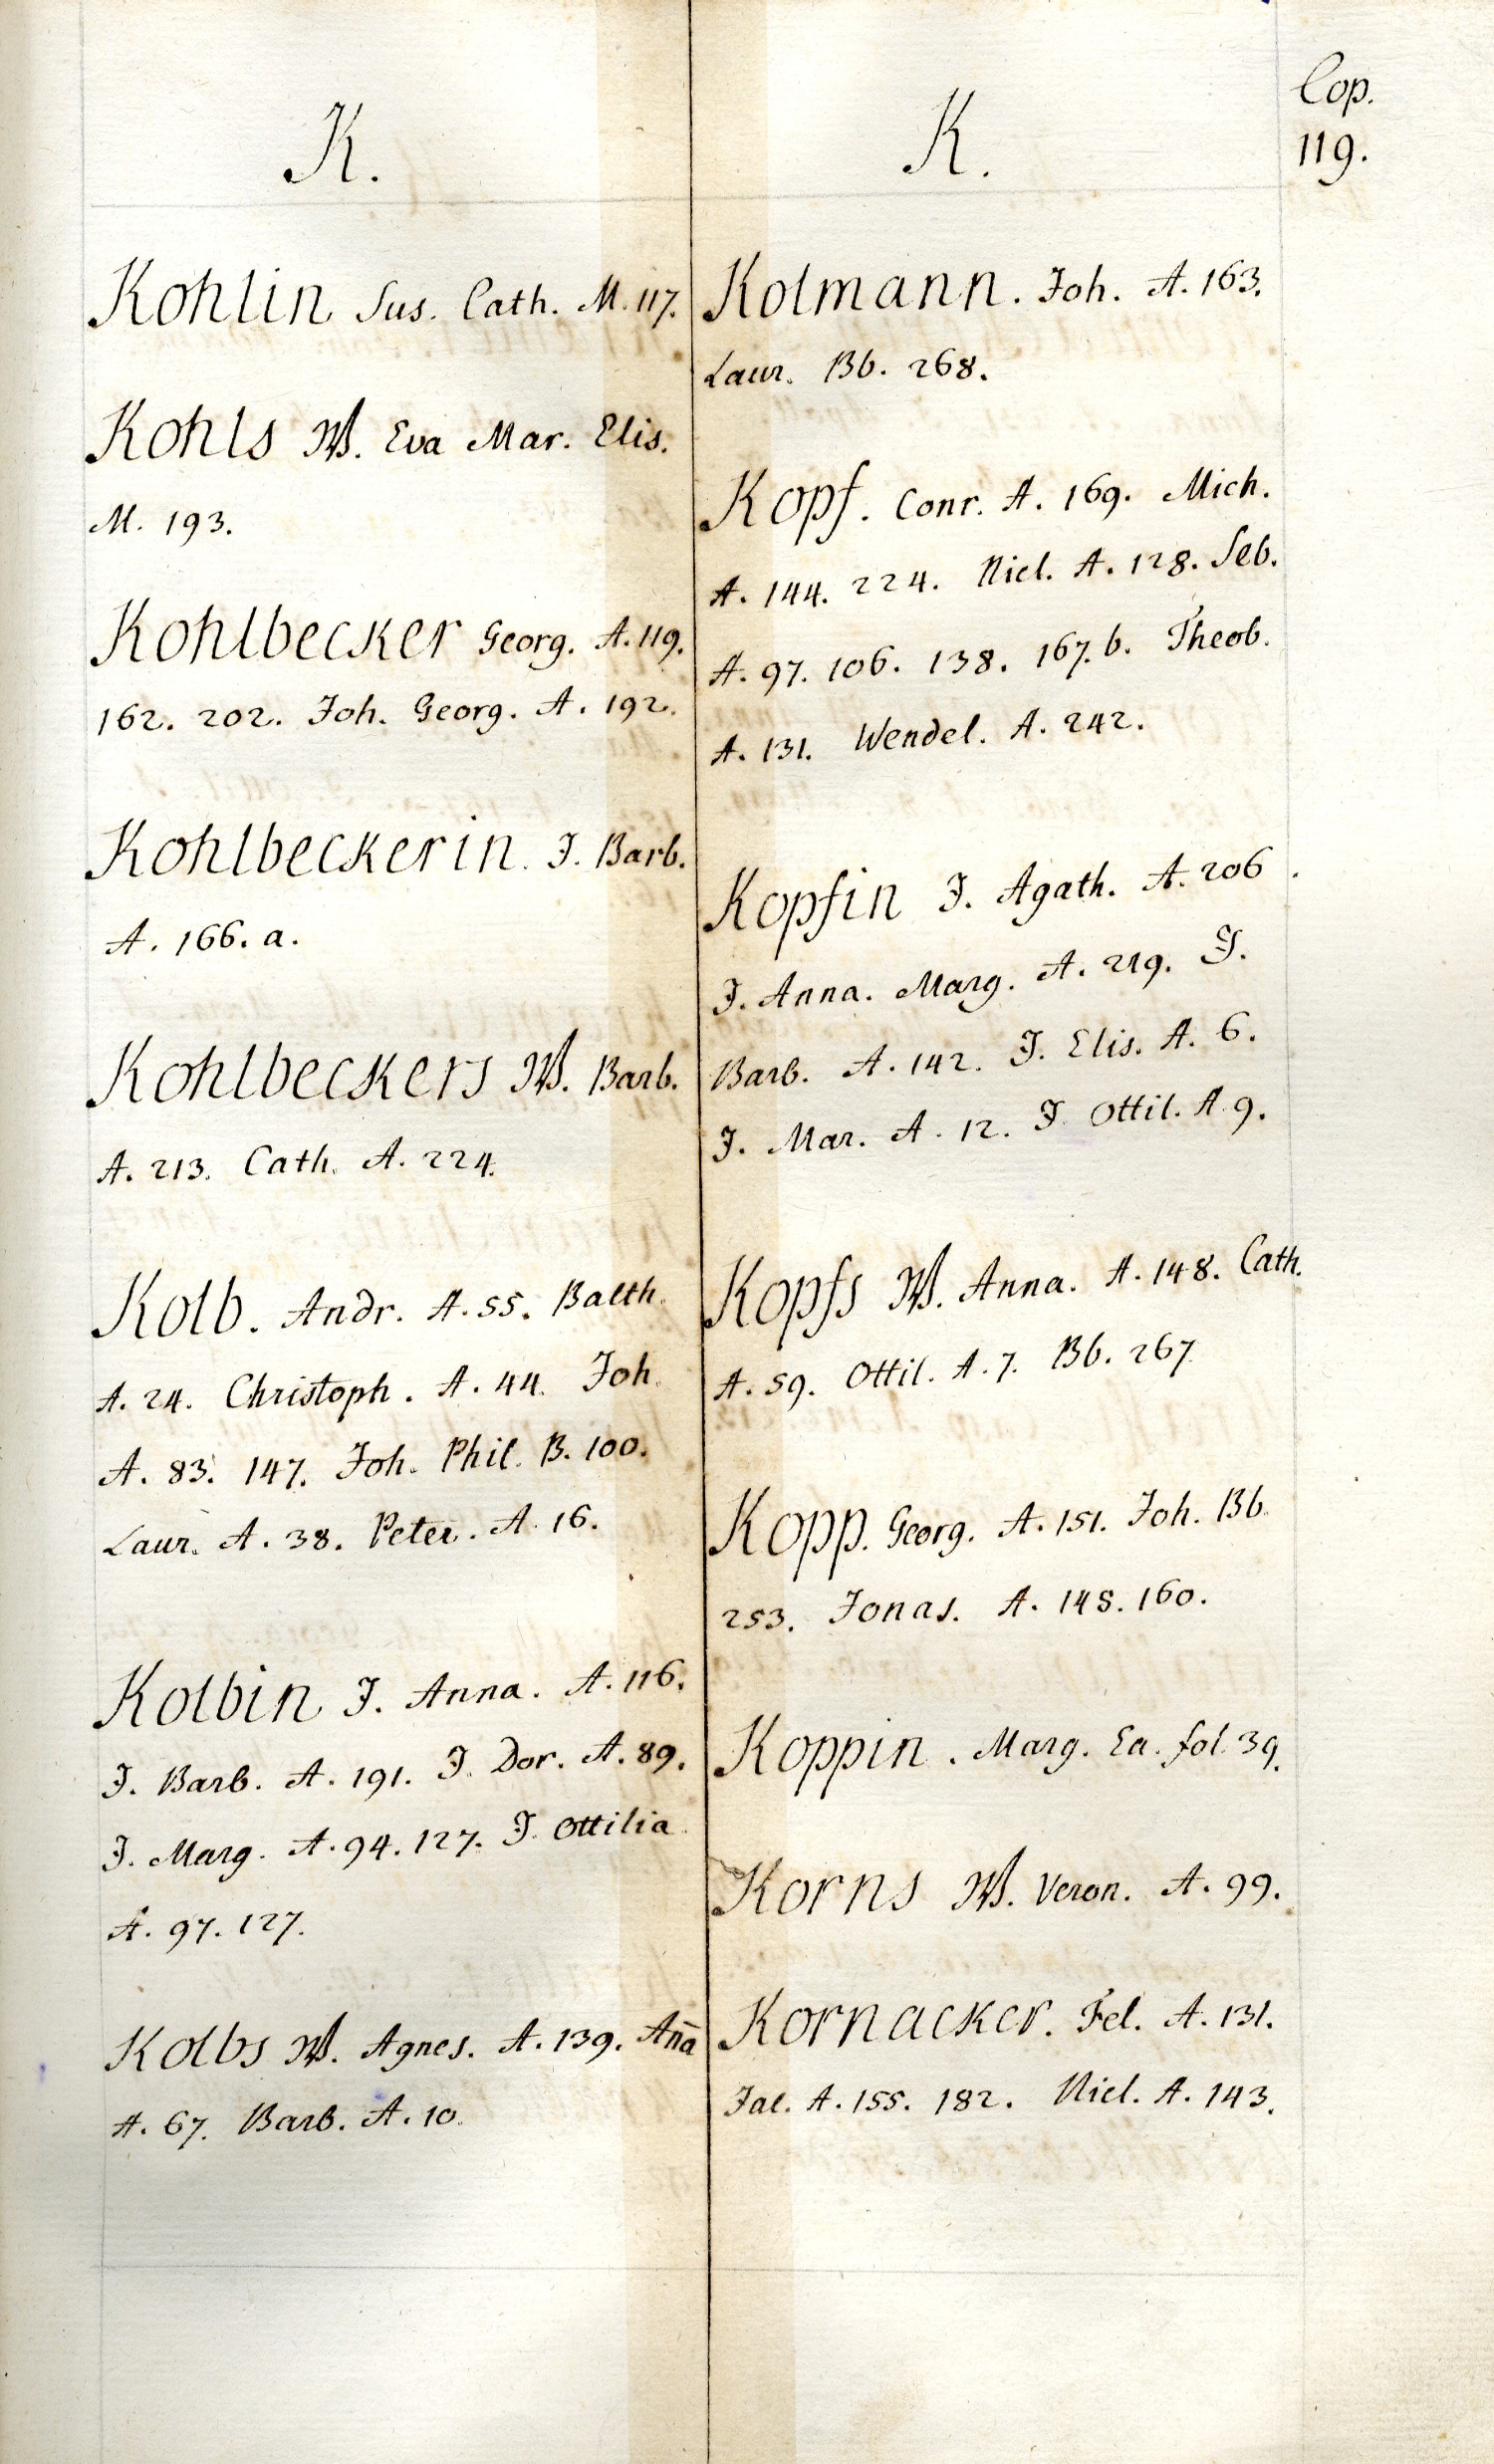 Cop.
119.
K.
Kohlin Sus. Cath. M. 117.
Kohls W. Eva Mar. Elis.
M. 193.
Kohlbecker Georg. A. 119.
162. 202. Joh. Georg. A. 192.
Kohlbeckerin. J. Barb.
A. 166. a.
Kohlbeckers W. Barb.
A. 213. Cath. A. 224.
Kolb. Andr. A. 55. Balth.
A. 24. Christoph. A. 44. Joh.
A. 83. 147. Joh. Phil. B. 100.
Laur. A. 38. Peter. A. 16.
Kolbin J. Anna. A. 116.
J. Barb. A. 191. J. Dor. A. 89.
J. Marg. A. 94. 127. J. Ottilia
A. 97. 127.
Kolbs W. Agnes. A. 139. Aña
A. 67. Barb. A. 10.
K.
Kolmann. Joh. A. 163.
Laur. Bb. 268.
Kopf. Conr. A. 169. Mich.
A. 144. 224. Nicl. A. 128. Seb.
A. 97. 106. 138. 167. b. Theob.
A. 131. Wendel. A. 242.
Kopfin J. Agath. A. 206.
J. Anna. Marg. A. 219. J.
Barb. A. 142. J. Elis. A. 6.
J. Mar. A. 12. J. Ottil. A. 9.
Kopfs W. Anna. A. 148. Cath.
A. 59. Ottil. A. 7. Bb. 267
Kopp. Georg. A. 151. Joh. Bb.
253. Jonas. A. 148. 160.
Koppin. Marg. Ea. fol. 39.
Korns W. Veron. A. 99.
Kornacker. Fel. A. 131.
Jac. A. 155. 182. Nicl. A. 143.